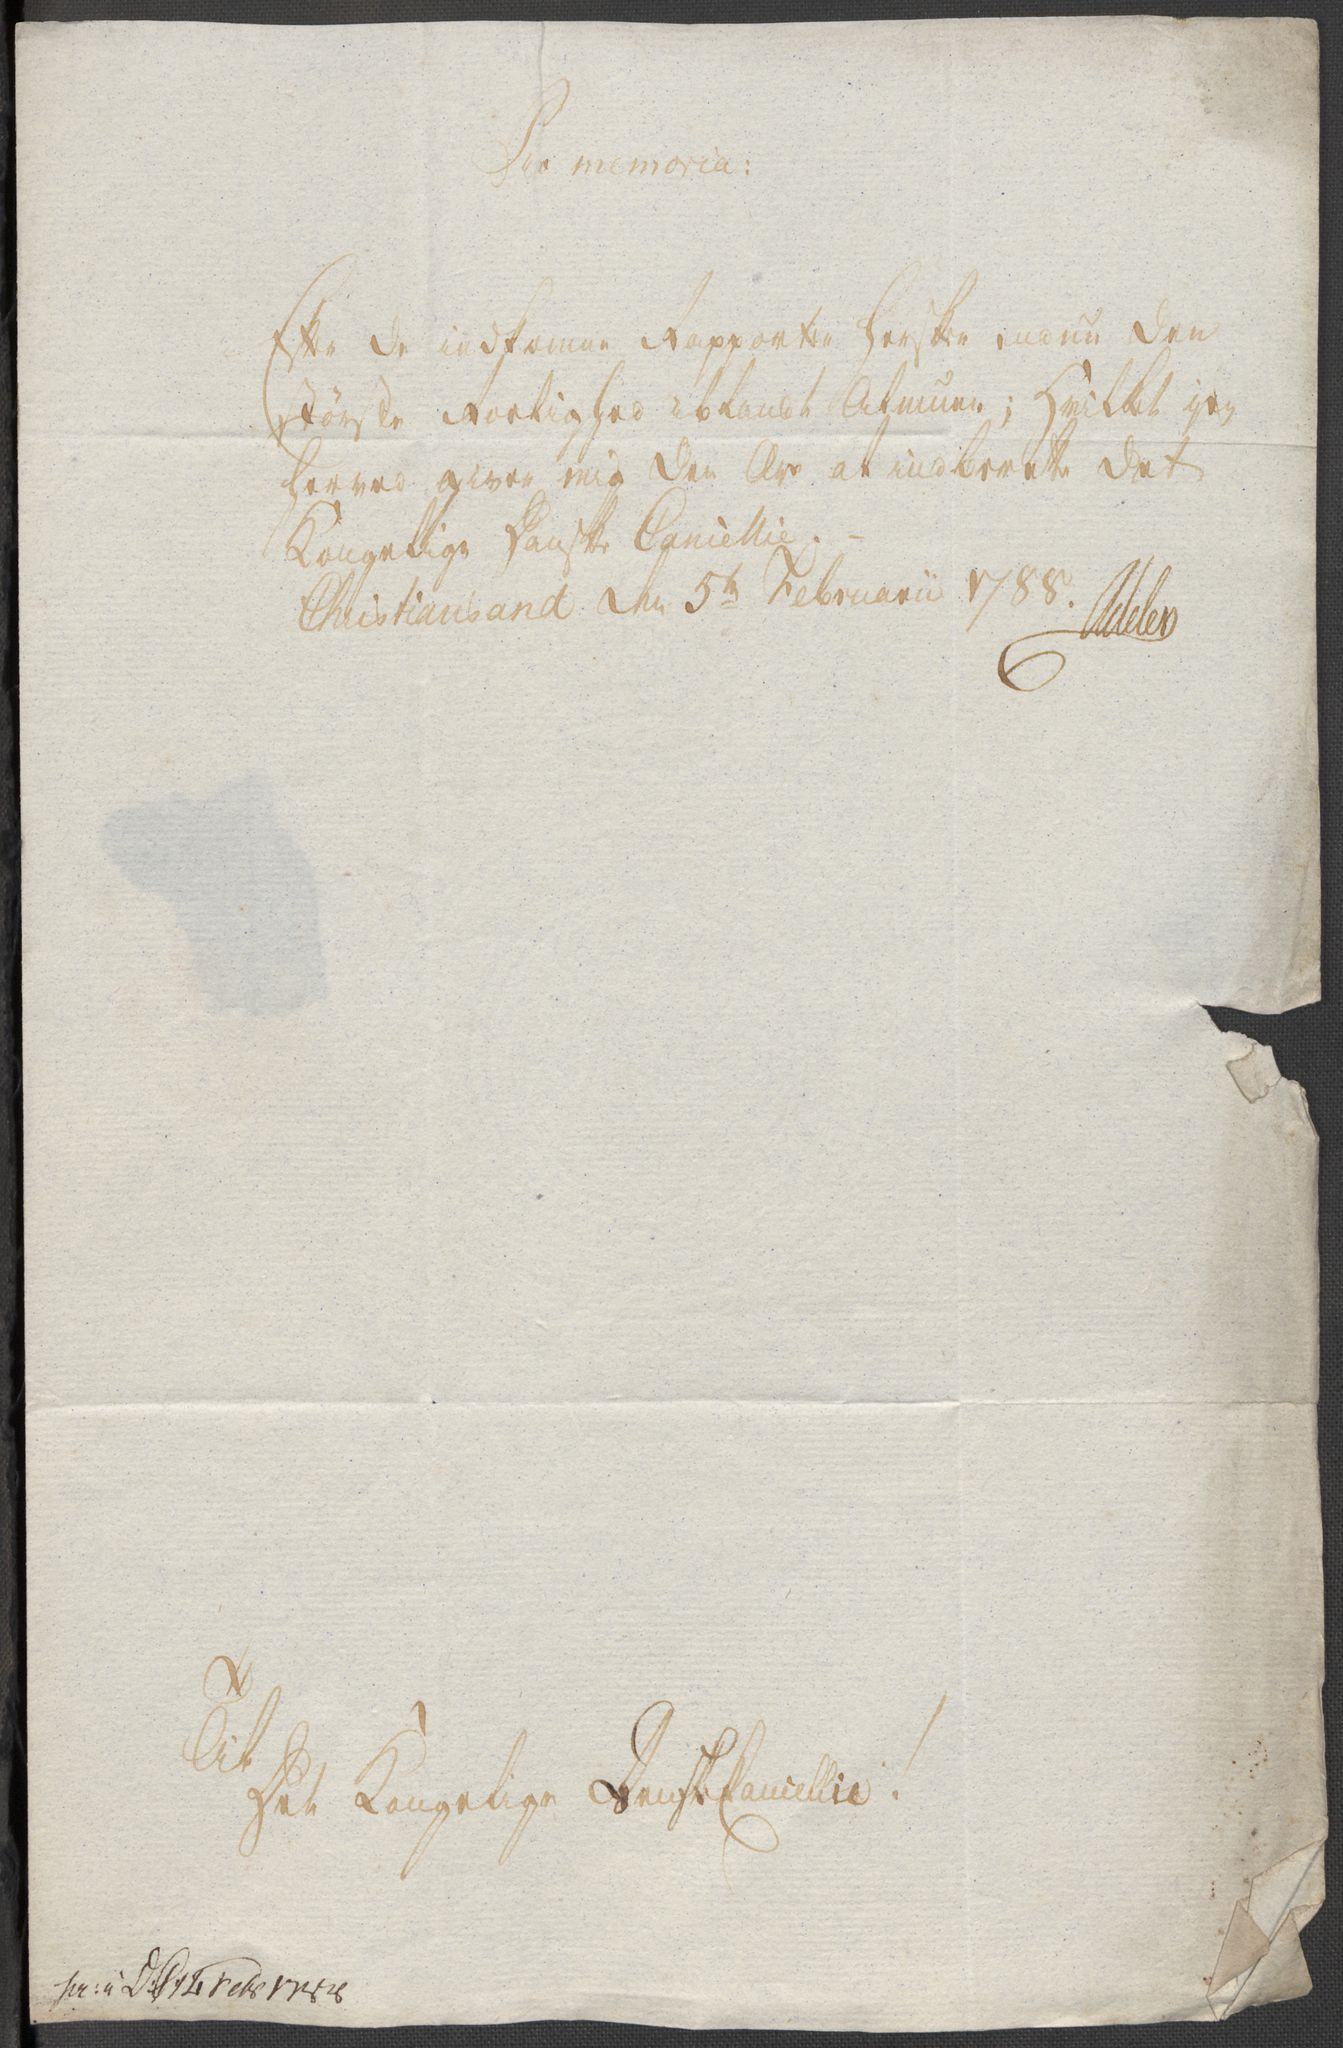 Pro memoria:
Efter de indkomne Rapporter hersker endnu den
største Roelighed iblandt Almuen; Hvilket jeg
herved giver mig den Ære at indberette det
Kongelige Danske Cancellie. –
Christiansand den 5te Februarii 1788.
Adeler
Til
Det Kongelige Danske Cancellie!
pr: i D: C: Febr 1788